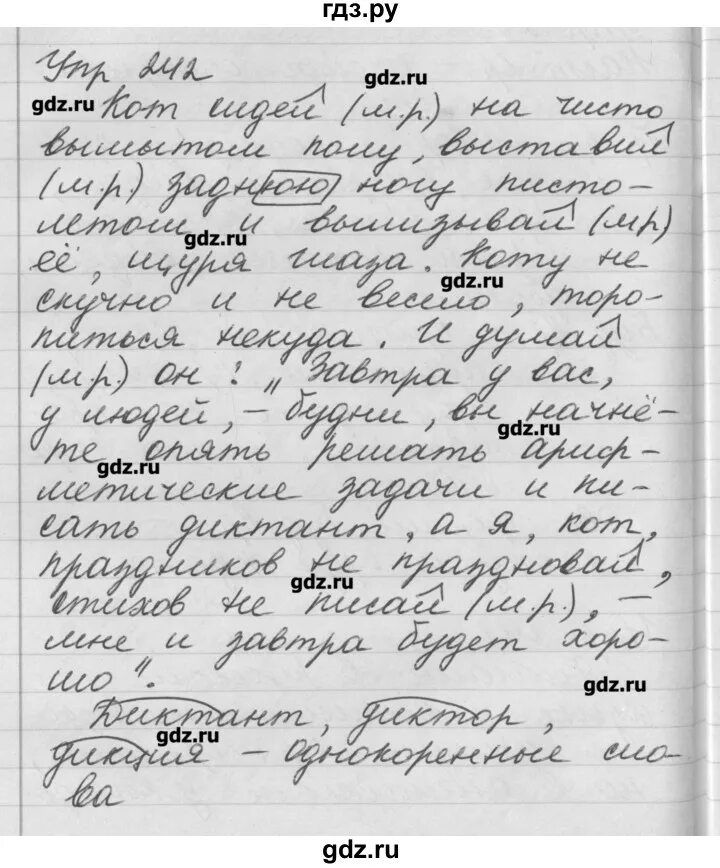 гдз.ру
Упр 242
gdz.ru
gdz.ru Кот сидей (м.р.) на чисто
вымытом полу, выставий
(м.р.) заднюю ногу писто-
летом и вылизывай (м.р)
gdz.ru
её, щуря глаза. Коту не
gdz.ru
скучно и не весело, торо-
питься некуда. И думай
(м.р.) он: „Завтра у вас,
у людей, – будни, вы начнё-
gdz.ru
те опять решать ариф-
gdz.ru
метические задачи и пи-
сать диктант, а я, кот,
праздников не праздновай,
gdz.ru
стихов не писай (м.р.), –
мне и завтра будет хоро-
шо".
gdz.ru
Диктант, диктор,
gdz.ru
дикция – однокоренные сло-
ва
gdz.ru